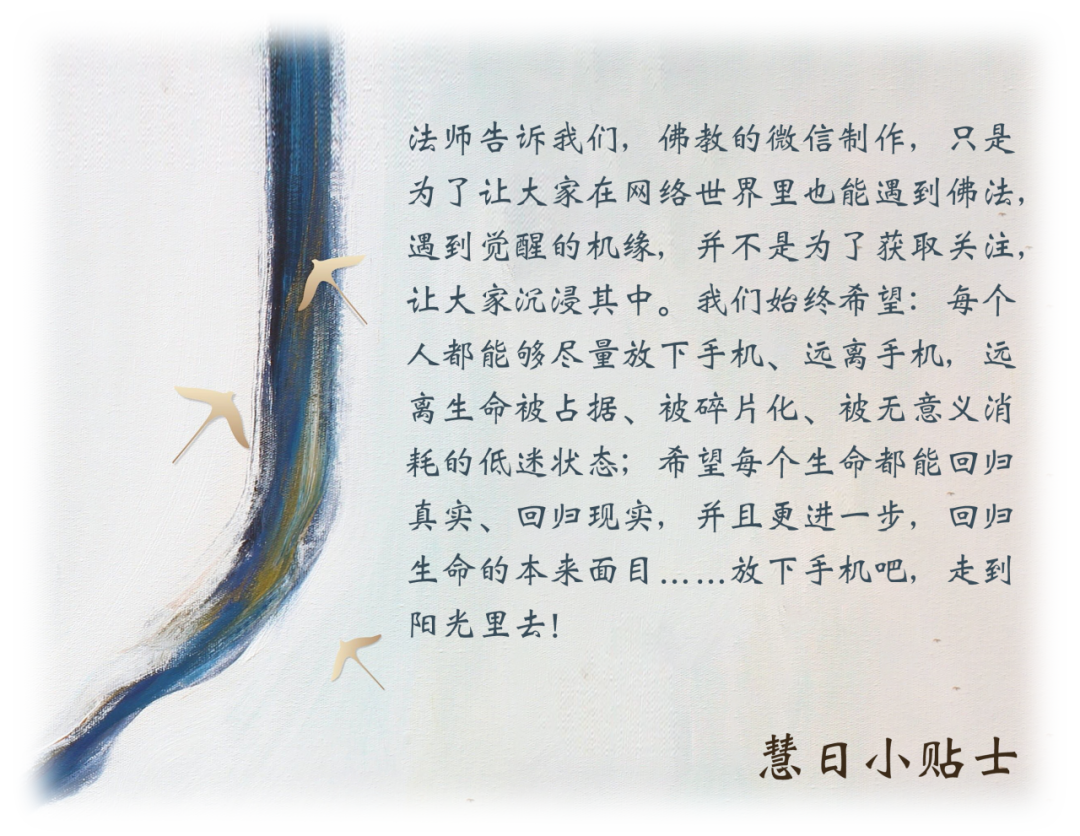 法师告诉我们，佛教的微信制作，只是
为了让大家在网络世界里也能遇到佛法，
遇到觉醒的机缘，并不是为了获取关注，
让大家沉浸其中。我们始终希望：每个
人都能够尽量放下手机、远离手机，远
离生命被占据、被碎片化、被无意义消
耗的低迷状态；希望每个生命都能回归
真实、回归现实，并且更进一步，回归
生命的本来面目……放下手机吧，走到
阳光里去！
慧日小贴士